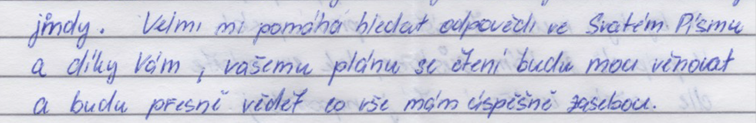 jindy. Velmi mi pomáhá hledat odpovědi ve Svatém Písmu
a díky Vám, vašemu plánu se čtení budu mou věnovat
a budu přesně vědět co vše mám úspěšně zasebou.